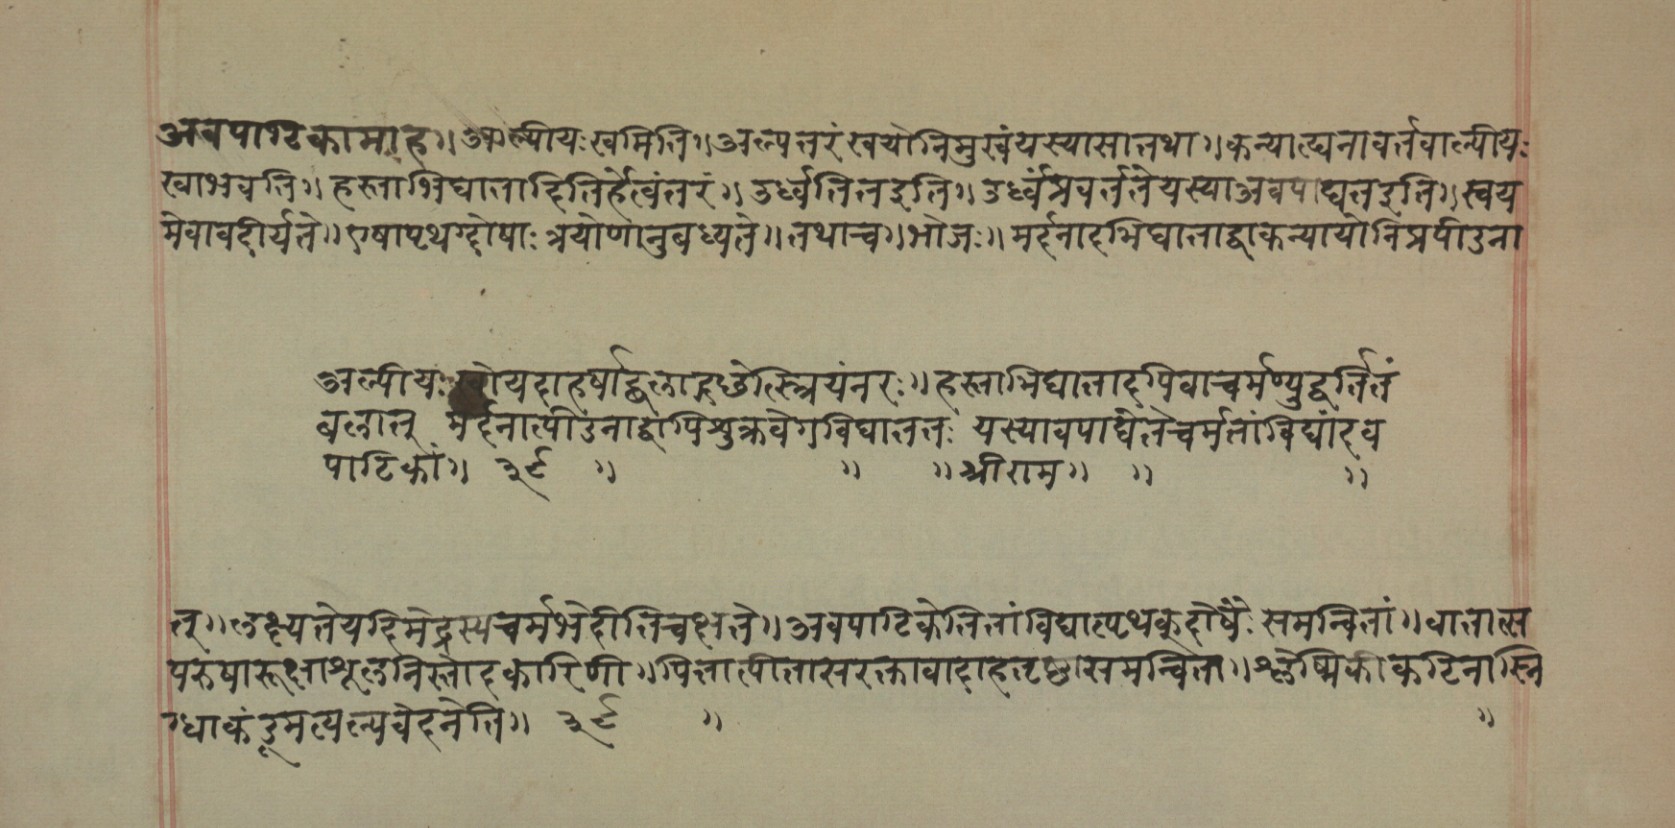 अवपाटिकामाह॥ अल्पीयःखमिति॥ अल्पतरंखयोनिमुखंयस्यासातथा॥ कन्यात्घनावर्तवाल्पीयः
खाभवति॥ हस्ताभिघातादितिर्हेत्वंतरं॥ उर्ध्वतितइति॥ उर्ध्वंप्रवर्ततेयस्याअवपाद्यतइति॥ स्वय
मेवावदीर्यते॥ एषापृथग्दोषाः त्रयोणानुबध्यते॥ तथाच॥ भोजः॥ मर्दनादभिघाताद्वाकन्यायोनिप्रपीडना
अल्पीयः यदाहर्षाद्बलाद्गछेत्स्त्रियंनरः॥ हस्ताभिघातादपिवाचर्मण्युद्वर्तितं
बलात् मर्दनात्पीडनाद्वापिशुक्रवेगविघाततः यस्यावपाद्यतेचर्मतांविद्यादव
पाटिकां॥ ३९ ॥ ॥ ॥ श्रीराम॥ ॥ ॥
त्॥ लक्ष्यतेयहिमेढ्रस्यचर्मभेदीतिचक्षते॥ अवपाटिकेतितांविद्यात्पृथक्दोषैः समन्वितां॥ वातात्स
परुषारूक्षाशूलनिस्तोदकारिणी॥ पित्तात्पीतासरक्तावादाहतृष्णासमन्विता॥ श्लेष्मिकीकठिनास्नि
ग्धाकंडूमत्यल्पवेदनेति॥ ३९ ॥ ॥